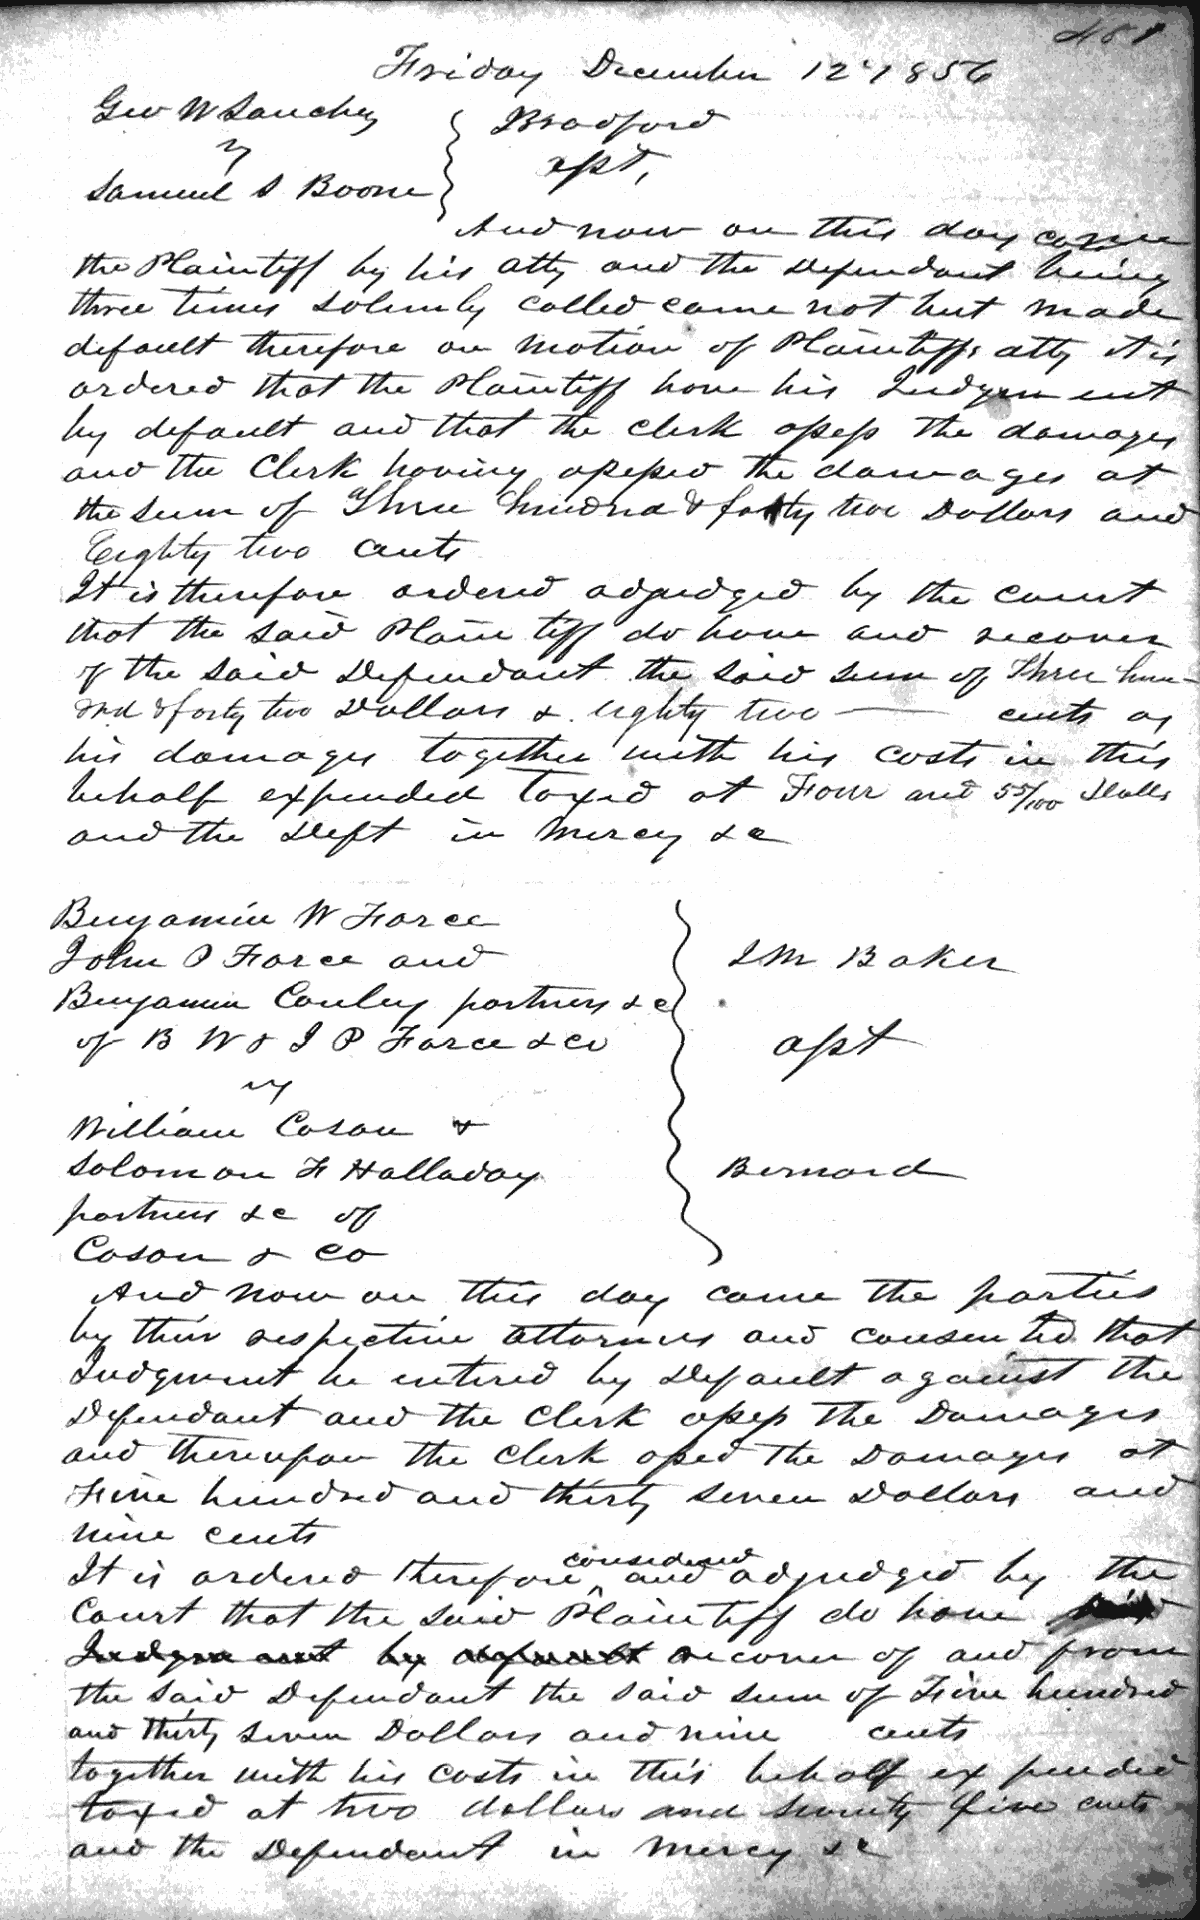 Friday December 12 1856
Geo W Sanchez } Bradford
vs
asst,
Samuel S Boone
And now on this day come
the Plaintiff by his atty and the Defendant being
three times solemly called came not but made
default therefore on motion of Plaintiffs atty it is
ordered that the Plaintiff have his Judgment
by default and that the clerk assess the damages
and the Clerk having assessed the damages at
the sum of Three hundred & forty two Dollars and
Eighty two cents
It is therefore ordered adjudged by the court
that the said Plaintiff do have and recover
of the said Defendant the said sum of Three hun-
dred & forty two Dollars & eighty two — cents as
his damages together with his costs in this
behalf expended Taxed at Four and 55/100 Dolls
and the Deft in Mercy &c
Benjamin W Force
John P Force and
J M Baker
Benjamin Conley partners &c
of B W & J P Force & Co
asst
vs
William Coson &
Solomon F Halladay
Bernard
partners &c of
Coson & Co
And now on this day came the parties
by their respective attornies and consented that
Judgment be entered by Default against the
Defendant and the Clerk assess the Damages
and thereupon the Clerk assed the Damages at
Five hundred and thirty seven Dollars and
nine cents
It is ordered therefore considered and adjudged by the
Court that the said Plaintiff do have
Judgment by default recover of and from
the said Defendant the said sum of Five hundred
and thirty seven Dollars and nine cents
together with his costs in this behalf expended
taxed at two dollars and seventy five cents
and the Defendant in Mercy &c